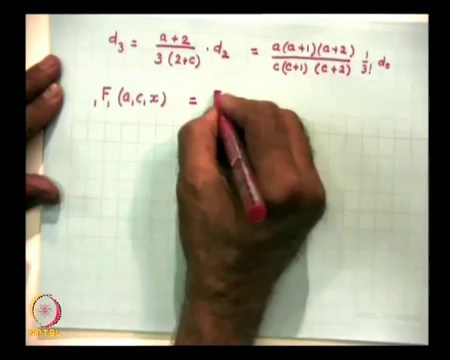 d₃ = a+2 / 3(2+c) · d₂ = a(a+1)(a+2) / c(c+1)(c+2) 1/3! d₀
₁F₁(a,c,x) =
NPTEL